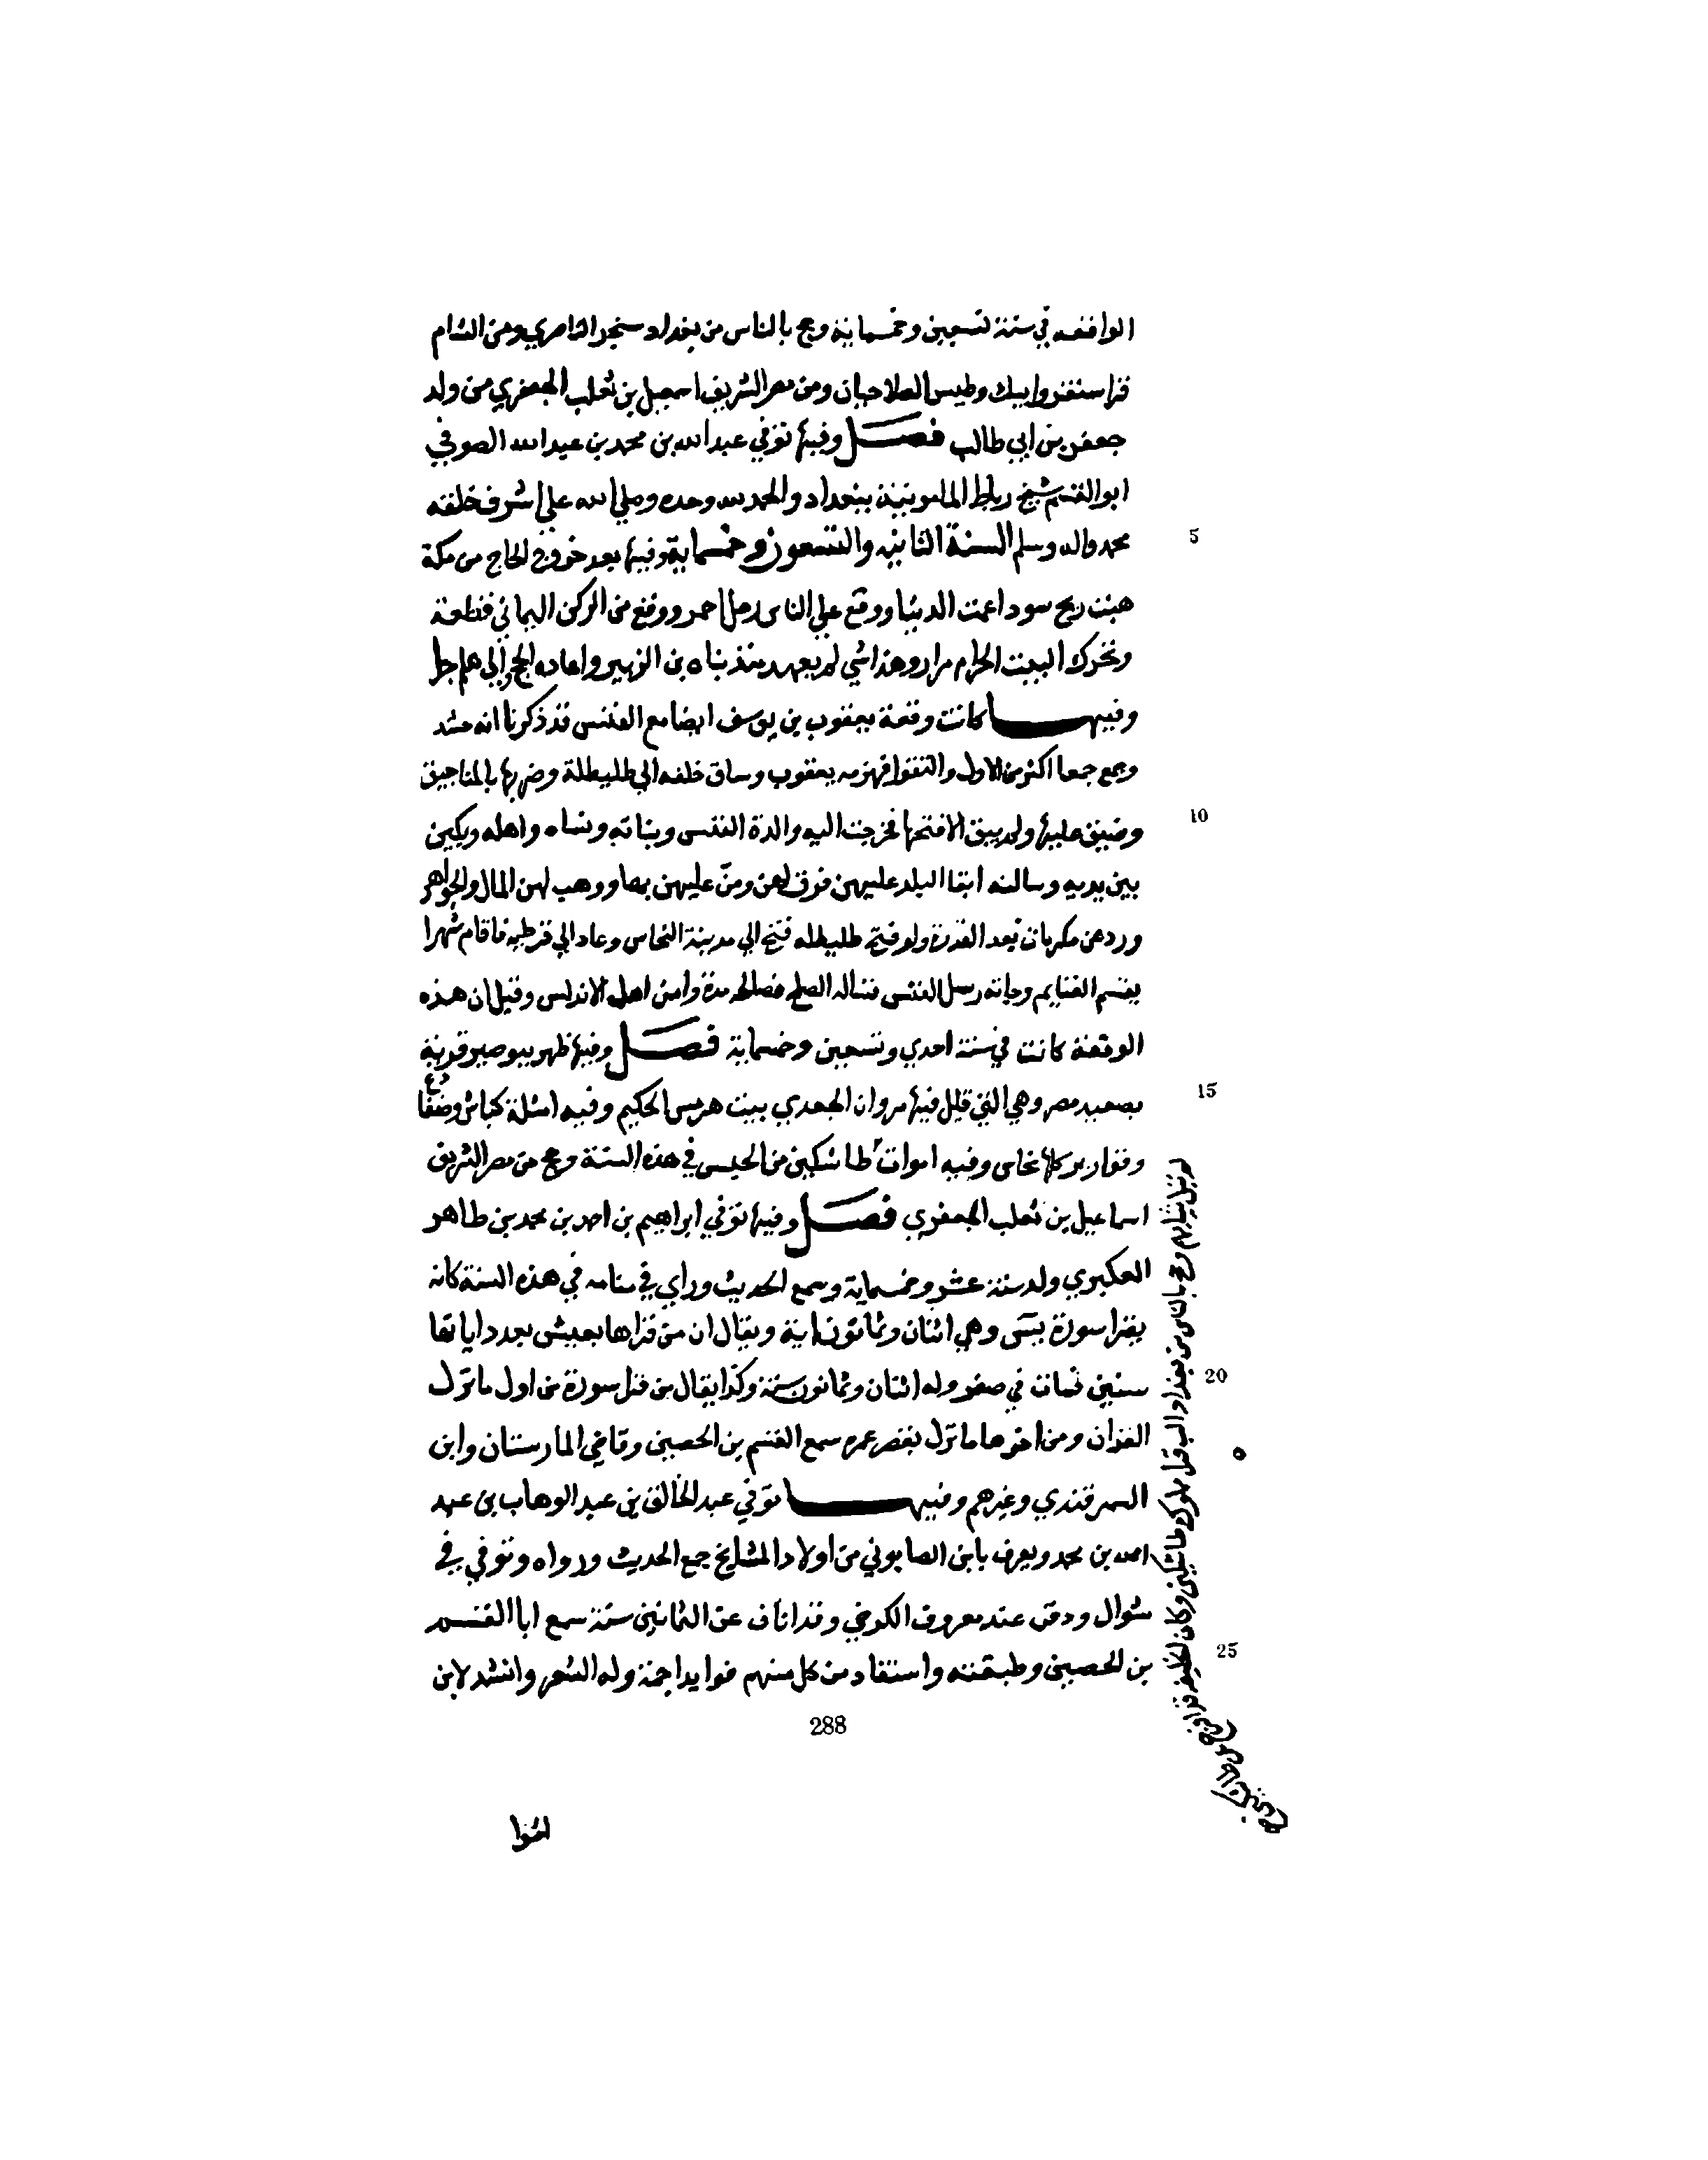 الواقعه في سنة تسعين وخمسماية وحج بالناس من بغداد سنجر الناصري ومن الشام
قراسنقر وايبك وطيس الصلاحيان ومن مصر الشريف اسمعيل بن ثعلب الجعفري من ولد
جعفر بن ابي طالب فصل وفيها توفي عبد الله بن محمد بن عبد الله الصوفي
ابو القسم شيخ رباط المامونية ببغداد والحمد لله وحده وصلي الله علي اشرف خلقه
محمد واله وسلم السنة الثانيه والتسعون وخمسماية وفيها بعد خروج الحاج من مكة
هبت ريح سودا عمت الدنيا ووقع علي الناس رمل احمر ووقع من الركن اليماني قطعة
وتحرك البيت الحرام مرارا وهذا شي لم يعهد منذ بناه بن الزبير واعاده الحجر الي
وفيها كانت وقعة يعقوب بن يوسف ايضا مع الفنس قد ذكرنا انه حشد
وجمع جمعا اكثر من الاول والتقوا فهزمه يعقوب وساق خلفه الي طليطلة وضربها بالمناجيق
وضيق عليها ولم يبق الا فتحها فخرجت اليه والدة الفنس وبناته ونساه واهله وبكين
بين يديه وسالنه ابقا البلد عليهن فرق لهن ومن عليهن بها ووهب لهن المال والجواهر
وردهن مكرمات بعد القدرة ولو فتح طليطله فتح الي مدينة النحاس وعاد الي قرطبه فاقام شهرا
يقسم الغنايم وجاته رسل الفنس تساله الصلح فصالحه مدة وامن اهل الاندلس وقيل ان هذه
الوقعة كانت في سنة احدي وتسعين وخمسماية فصل وفيها ظهر ببوصير قرية
بصعيد مصر وهي التي قتل فيها مروان الجعدي بيت هرمس الحكيم وفيه امثلة كباش وضفادع
وقوارير كلها نحاس وفيه اموات طاشتكين من الحبس في هذه السنة وحج من مصر الشريف
اسماعيل بن ثعلب الجعفري فصل وفيها توفي ابراهيم بن احمد بن محمد بن طاهر
العكبري ولد سنة عشر وخمسماية وسمع الحديث وراي في منامه في هذه السنة كانه
يقرا سورة يس وهي اثنان وثمانون اية ويقال ان من قراها يعيش بعدد اياتها
سنين فمات في صفر وله اثنان وثمانون سنة وكذا يقال من قرا سورة من اول ما نزل
القران ومن اخر ها ما نزل يقصر عمره سمع القسم بن الحصين وقاضي المارستان وابن
السمرقندي وغيرهم وفيها توفي عبد الخالق بن عبد الوهاب بن عبد
الله بن محمد ويعرف بابن الصابوني من اولاد المشايخ جمع الحديث ورواه وتوفي في
شوال ودفن عند معروف الكرخي وقد اناف عن الثمانين سنة سمع ابا القسم
بن الحصين وطبقته واستفاد من كل منهم فوايدا جمة وله الشعر وانشد لابن
5
10
15
20
25
لم تبل ثيابهم وحج بالناس من بغداد الب قرا مملوك طاشتكين وكان الخليفه قد افرج
288